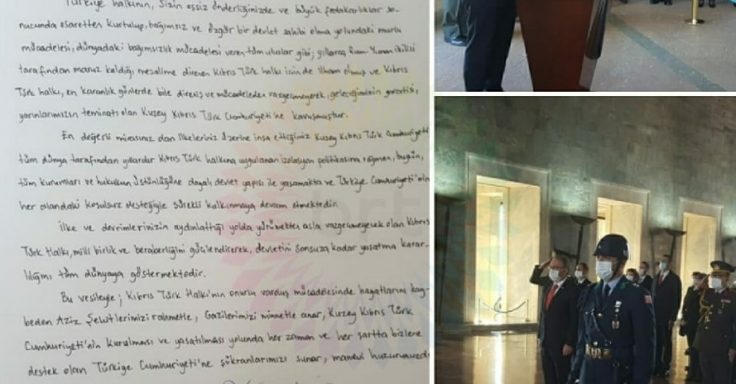 Türkiye halkının, sizin eşsiz önderliğinizde ve büyük fedakarlıklar so-
nucunda esaretten kurtulup, bağımsız ve özgür bir devlet sahibi olma yolundaki onurlu
mücadelesi, dünyadaki bağımsızlık mücadelesi veren tüm uluslar gibi; yıllarca Rum-Yunan ikilisi
tarafından maruz kaldığı mezalime direnen Kıbrıs Türk halkı için de ilham olmuş ve Kıbrıs
Türk halkı, en karanlık günlerde bile direniş ve mücadeleden vazgeçmeyerek, geleceğimizin garantisi,
yarınlarımızın teminatı olan Kuzey Kıbrıs Türk Cumhuriyeti'ne kavuşmuştur.
En değerli mirasınız olan ilkeleriniz üzerine inşa ettiğimiz Kuzey Kıbrıs Türk Cumhuriyeti
tüm dünya tarafından yıllardır Kıbrıs Türk halkına uygulanan izolasyon politikasına rağmen, bugün,
tüm kurumları ve hukukun üstünlüğüne dayalı devlet yapısı ile yaşamakta ve Türkiye Cumhuriyeti'nin
her alandaki koşulsuz desteğiyle sürekli kalkınmaya devam etmektedir.
İlke ve devrimlerinizin aydınlattığı yolda yürümekten asla vazgeçmeyecek olan Kıbrıs
Türk Halkı, milli birlik ve beraberliğini güçlendirerek, devletini sonsuza kadar yaşatma karar-
lılığını tüm dünyaya göstermektedir.
Bu vesileyle; Kıbrıs Türk Halkı'nın onurlu varoluş mücadelesinde hayatlarını kay-
beden Aziz Şehitlerimizi rahmetle, Gazilerimizi minnetle anar, Kuzey Kıbrıs Türk
Cumhuriyeti'nin kurulması ve yaşatılması yolunda her zaman ve her şartta bizlere
destek olan Türkiye Cumhuriyeti'ne şükranlarımızı sunar, manevi huzurunuzda